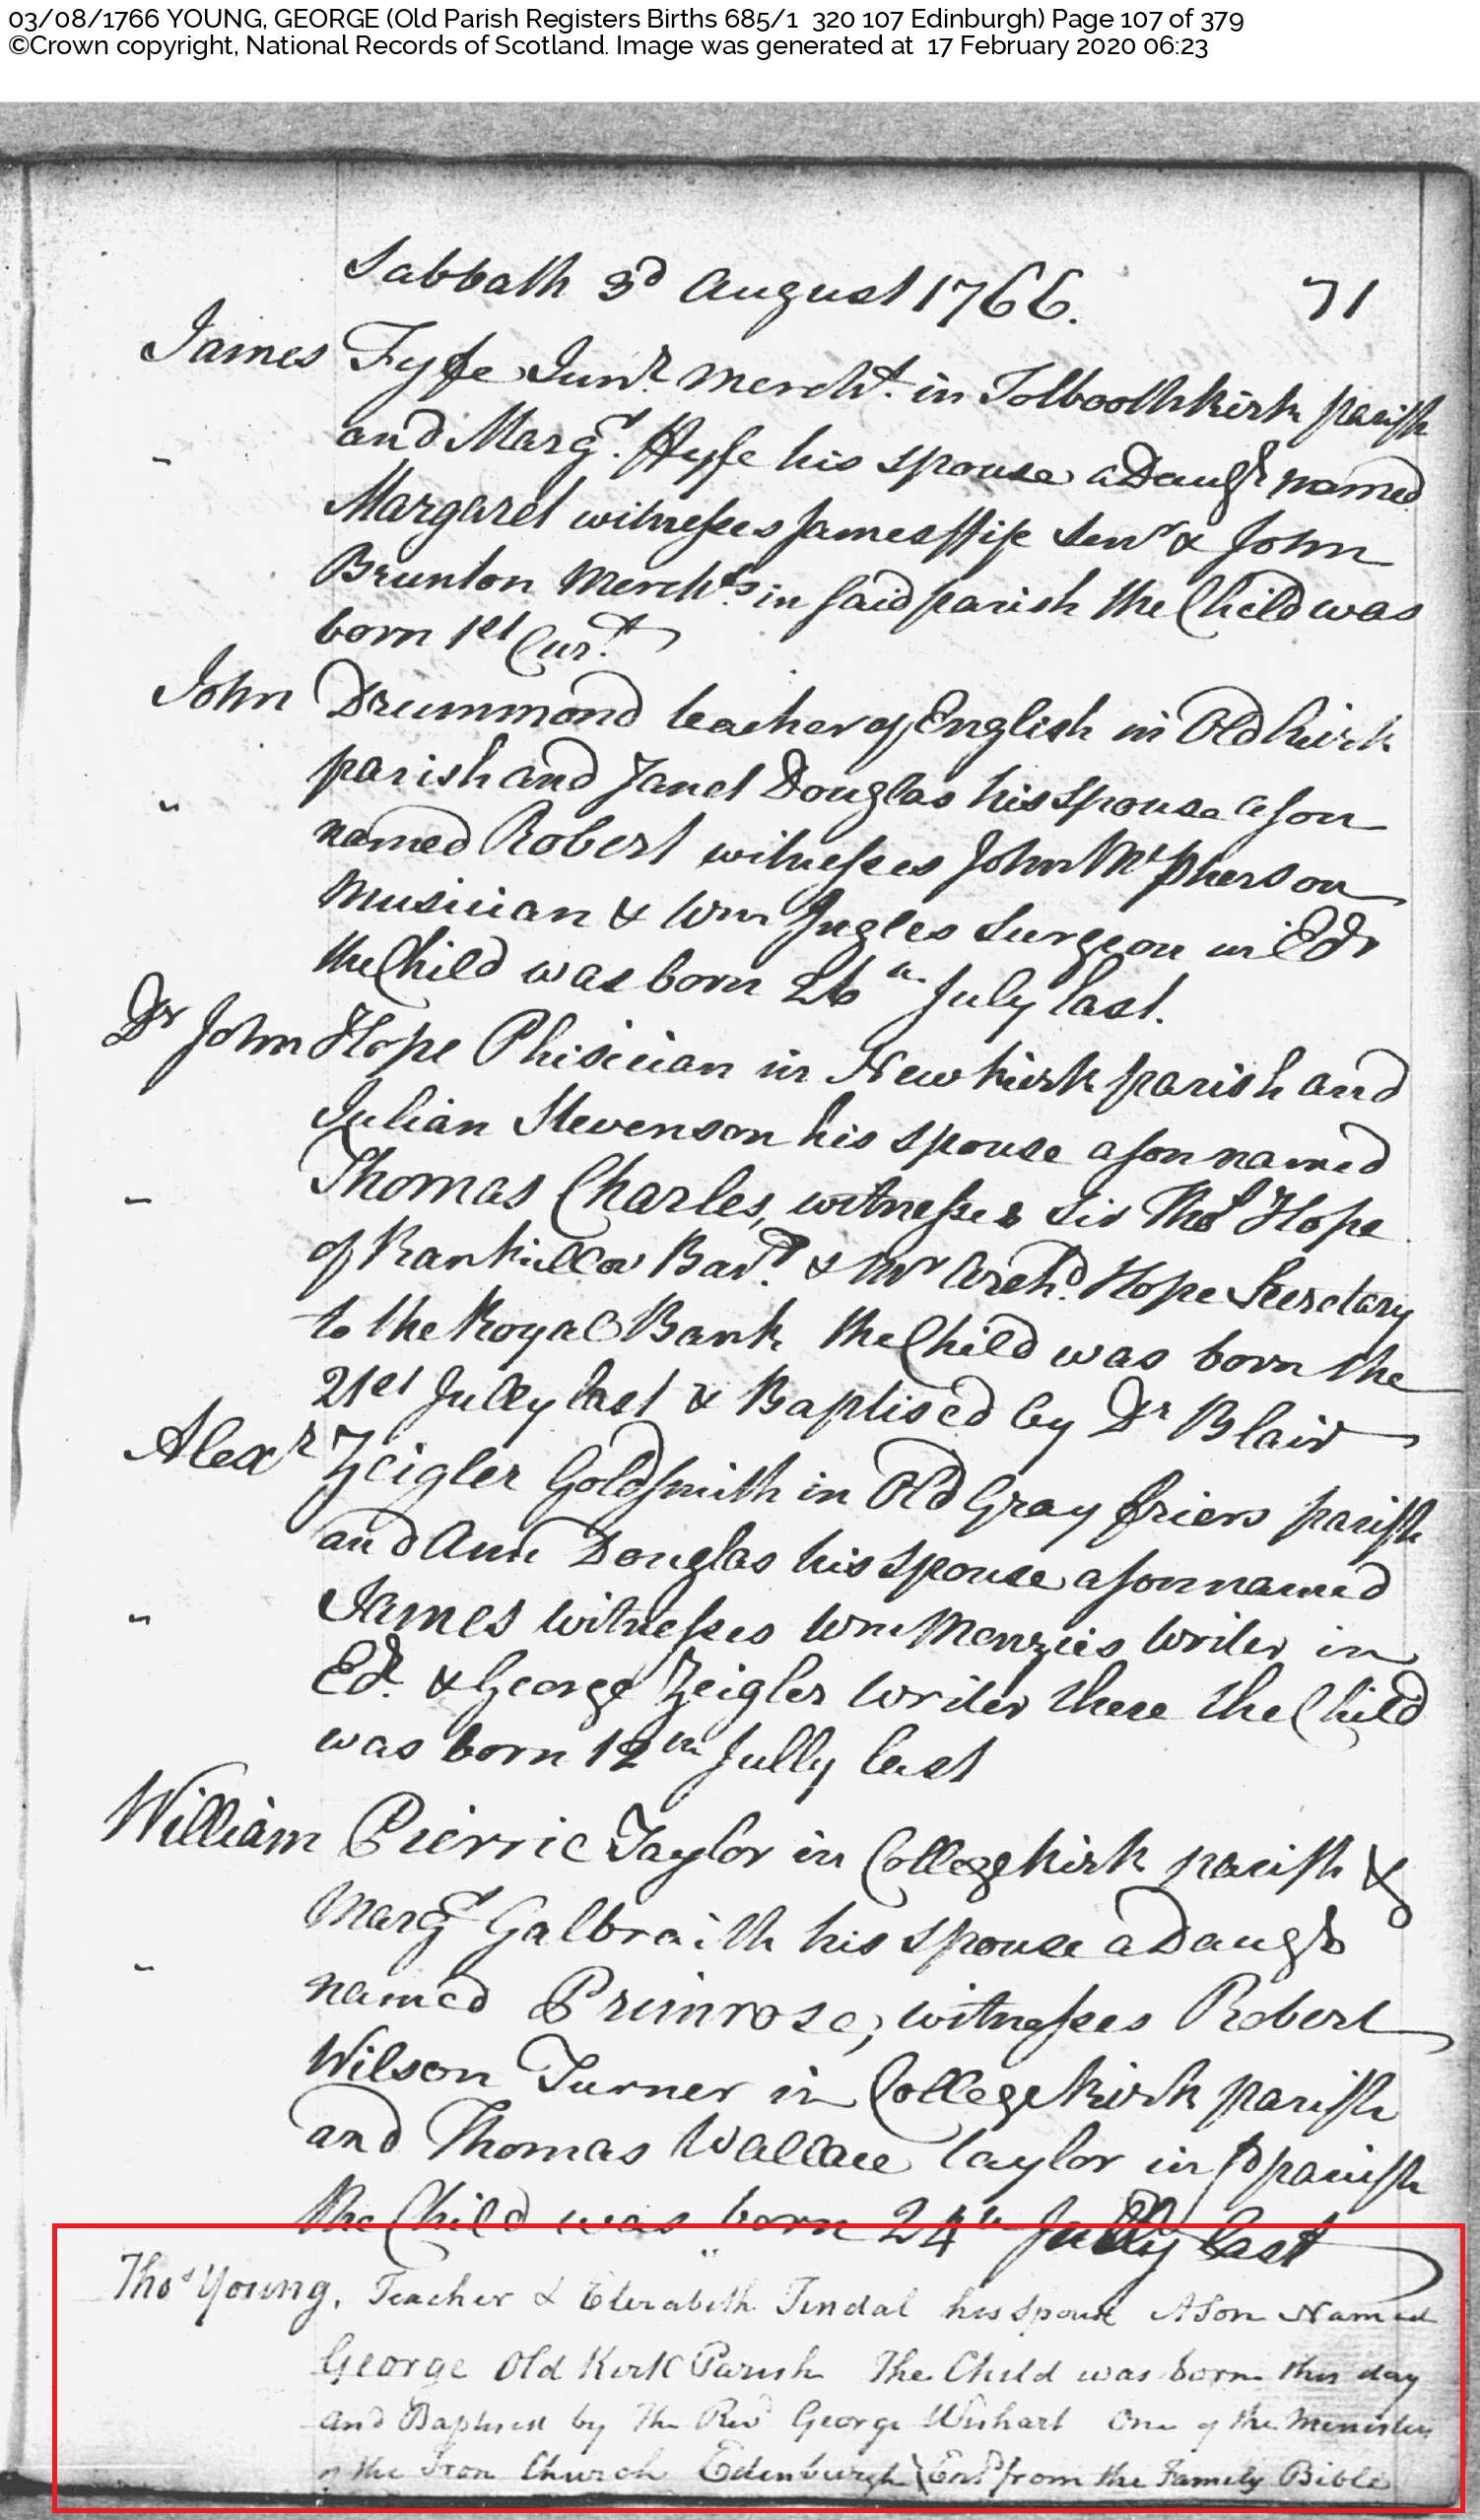 03/08/1766 YOUNG, GEORGE (Old Parish Registers Births 685/1 320 107 Edinburgh) Page 107 of 379
©Crown copyright, National Records of Scotland. Image was generated at 17 February 2020 06:23
Sabbath 3d August 1766. 71
James Fyfe Junr. Mercht. in Tolboothkirk parish
and Margt. Fyfe his spouse a Daughr named
Margaret witnesses James Fife Senr & John
Brunton Merchts. in said parish the Child was
born 1st Curt.
John Drummond teacher of English in Old kirk
parish and Janet Douglas his spouse a son
named Robert witnesses John McPherson
Musician & Wm Ingles Surgeon in Edr
the Child was born 26th July last.
Dr John Hope Phisician in New kirk parish and
Julian Stevenson his spouse a son named
Thomas Charles, witnesses Sir Thos Hope
of Rankillor Bart. & Mr Archd. Hope Secretary
to the Royal Bank the Child was born the
21st Jully last & Baptised by Dr Blair
Alexr Zeigler Goldsmith in Old Gray friers parish
and Ann Douglas his spouse a son named
James witnesses Wm Menzies writer in
Edr. & George Zeigler writer there the Child
was born 12th Jully last
William Pierrie Taylor in College kirk parish &
Margt Galbraith his spouse a Daughr
named Primrose, witnesses Robert
Wilson Turner in College kirk parish
and Thomas Wallace taylor in sd parish
the Child was born 24th Jully last
Thos Young, Teacher & Elizabeth Tindal his spouse A Son Named
George Old Kirk Parish The Child was born this day
and Baptised by The Revd George Wishart One of the Ministers
of the Tron Church Edinburgh (Entd from the Family Bible